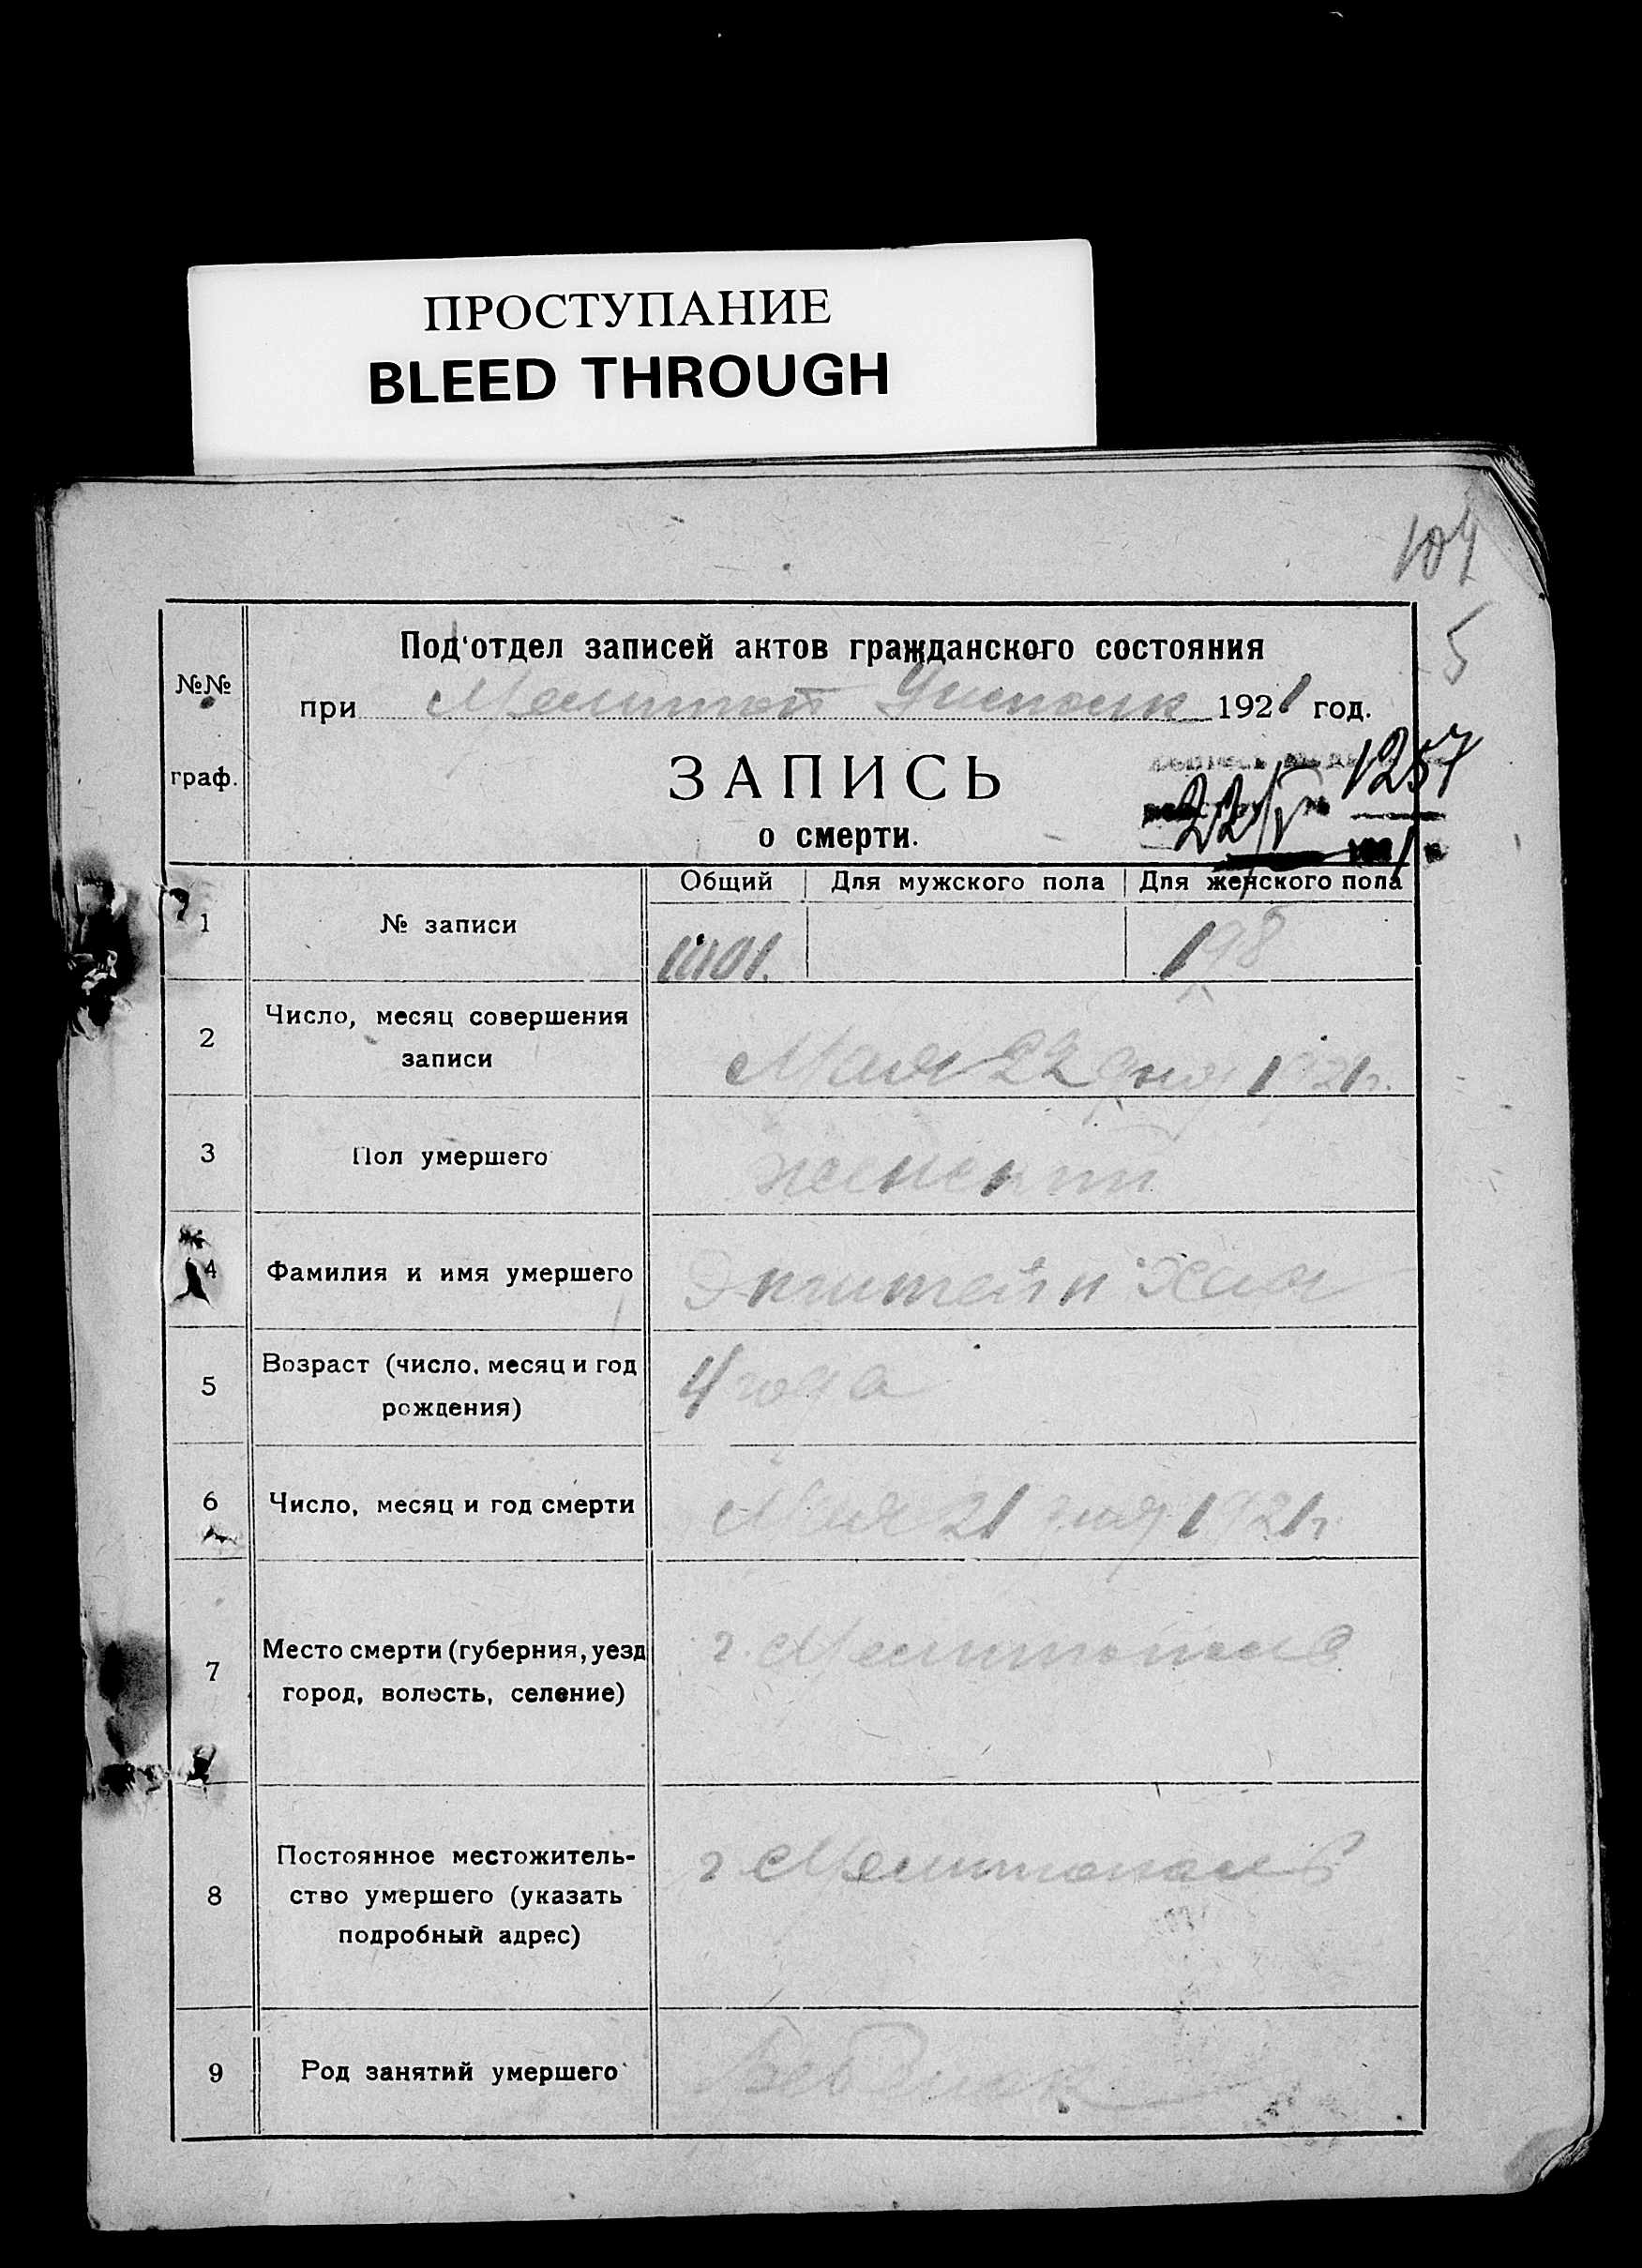 ПРОСТУПАНИЕ
BLEED THROUGH
104
5
№№
граф.
Под'отдел записей актов гражданского состояния
при Мелитоп Уисполк 1921 год.
ЗАПИСЬ
о смерти.
1257
22/V
Общий Для мужского пола Для женского пола
1 № записи 198
2 Число, месяц совершения
записи
Мая 22 дня 1921 г.
3 Пол умершего женский
4 Фамилия и имя умершего Эпштейн Хая
5 Возраст (число, месяц и год
рождения)
4 года
6 Число, месяц и год смерти Мая 21 дня 1921 г.
7 Место смерти (губерния, уезд
город, волость, селение)
г. Мелитополь
8 Постоянное местожитель-
ство умершего (указать
подробный адрес)
г. Мелитополь
9 Род занятий умершего